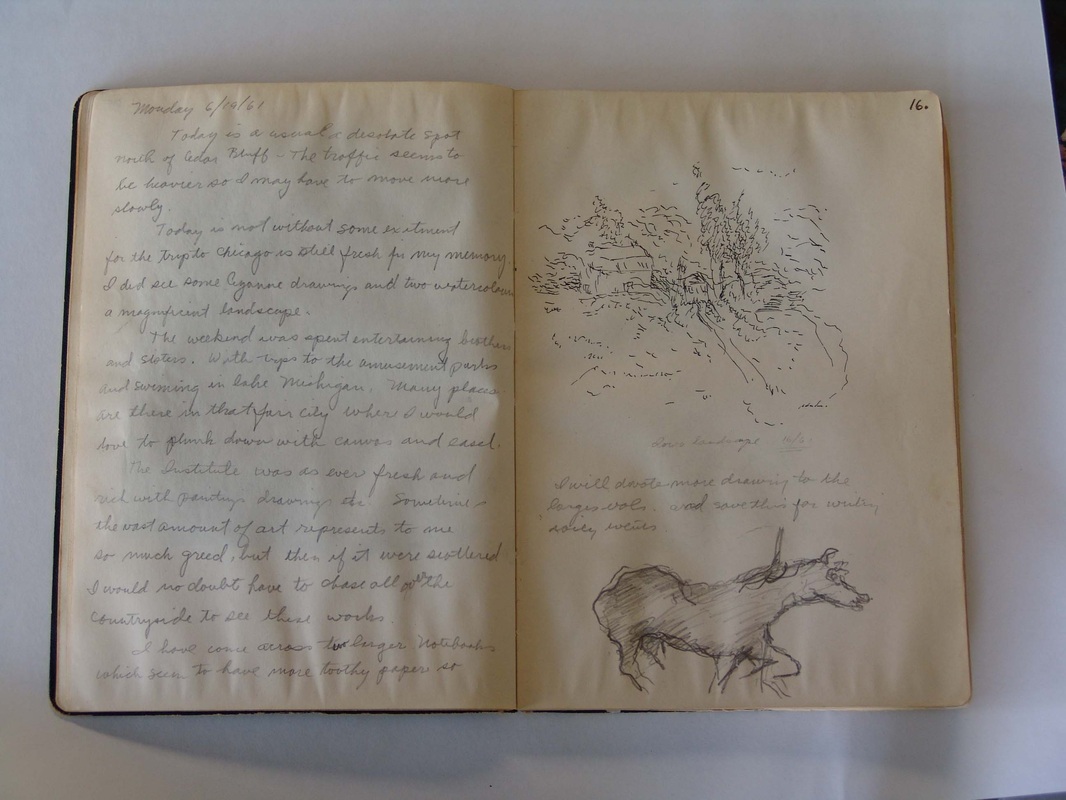 Monday 6/19/61
Today is a usual & desolate spot
north of Cedar Bluff - The traffic seems to
be heavier so I may have to move more
slowly.
Today is not without some exitment
for the trip to Chicago is still fresh in my memory.
I did see some Cezanne drawings and two watercolors
a magnificent landscape.
The weekend was spent entertaining brothers
and sisters. With trips to the amusement parks
and swiming in lake Michigan. Many places
are there in that fair city where I would
love to plunk down with canvas and easel.
The Institute was as ever fresh and
rich with paintings drawings etc. Sometimes
the vast amount of art represents to me
so much greed, but then if it were scattered
I would no doubt have to chase all over the
countryside to see these works.
I have come across two larger Notebooks
which seem to have more toothy paper so
16.
Iowa landscape
I will devote more drawing to the
larger vols. and save this for writing